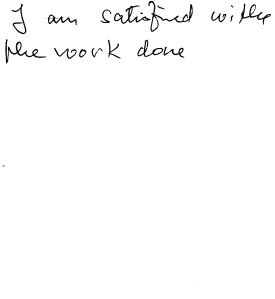 I am satisfied with
the work done